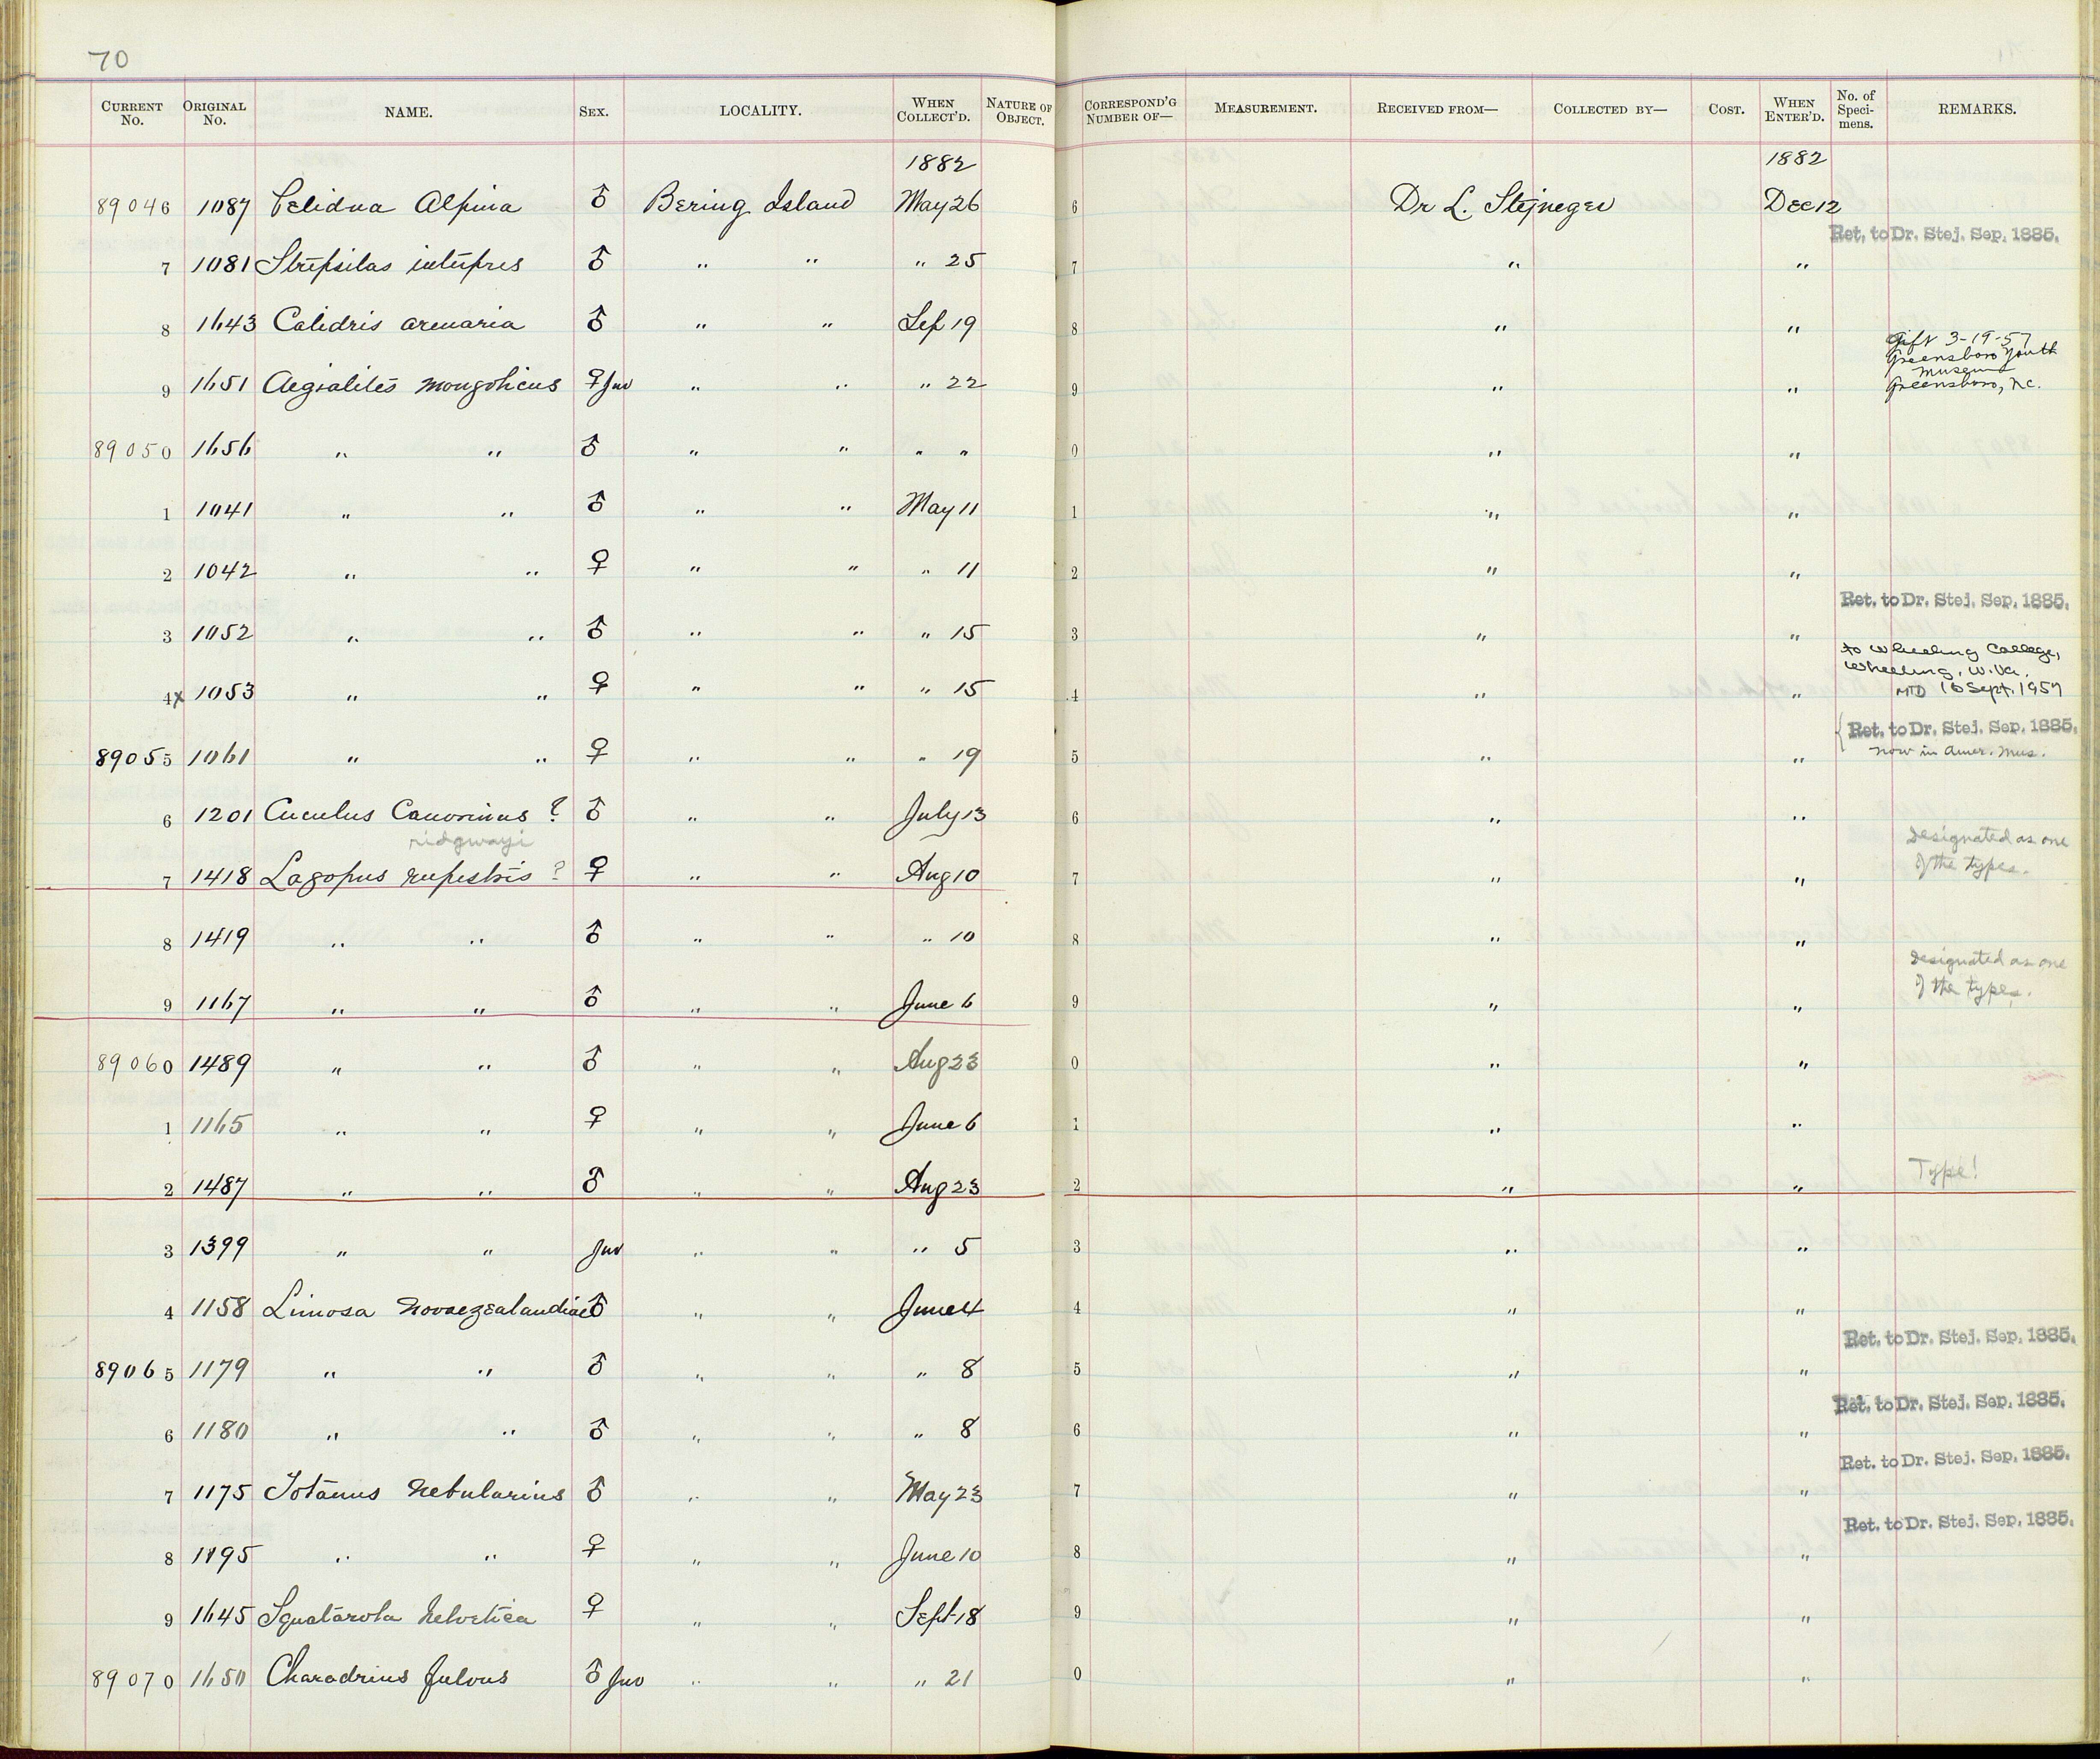 70
CURRENT No. ORIGINAL No. NAME. SEX. LOCALITY. WHEN COLLECT'D. NATURE OF OBJECT. CORRESPOND'G NUMBER OF— MEASUREMENT. RECEIVED FROM— COLLECTED BY— COST. WHEN ENTER'D. No. of Specimens. REMARKS.
1882 1882
89046 1087 Pelidna Alpina ♂ Bering Island May 26 6 Dr L. Stejneger Dec 12
Ret. to Dr. Stej. Sep. 1885.
7 1081 Strepsilas interpres ♂ " " " 25 7 " "
8 1643 Calidris arenaria ♂ " " Sep 19 8 " "
Gift 3-19-57
Greensboro Youth
Museum
Greensboro, N.C.
9 1651 Aegialites mongolicus ♀ Juv " " " 22 9 " "
89050 1656 " " ♂ " " " " 0 " "
1 1041 " " ♂ " " May 11 1 " "
2 1042 " " ♀ " " " 11 2 " "
Ret. to Dr. Stej. Sep. 1885.
3 1052 " " ♂ " " " 15 3 " "
to Wheeling College,
Wheeling, W. Va.
MTD 16 Sept. 1957
4x 1053 " " ♀ " " " 15 4 " "
Ret. to Dr. Stej. Sep. 1885.
now in Amer. Mus.
89055 1061 " " ♀ " " " 19 5 " "
6 1201 Cuculus Canorinus ? ♂ " " July 13 6 " "
ridgwayi
Designated as one
of the types.
7 1418 Lagopus rupestris ? ♀ " " Aug 10 7 " "
8 1419 " " ♂ " " " 10 8 " "
Designated as one
of the types.
9 1167 " " ♂ " " June 6 9 " "
89060 1489 " " ♂ " " Aug 23 0 " "
1 1165 " " ♀ " " June 6 1 " "
2 1487 " " ♂ " " Aug 23 2 " " Type!
3 1399 " " Juv " " " 5 3 " "
4 1158 Limosa Novaezealandiae ♂ " " June 4 4 " "
Ret. to Dr. Stej. Sep. 1885.
89065 1179 " " ♂ " " " 8 5 " "
Ret. to Dr. Stej. Sep. 1885.
6 1180 " " ♂ " " " 8 6 " "
Ret. to Dr. Stej. Sep. 1885.
7 1175 Totanus Nebularius ♂ " " May 23 7 " "
Ret. to Dr. Stej. Sep. 1885.
8 1195 " " ♀ " " June 10 8 " "
9 1645 Squatarola helvetica ♀ " " Sept 18 9 " "
89070 1650 Charadrius fulvus ♂ Juv " " " 21 0 " "